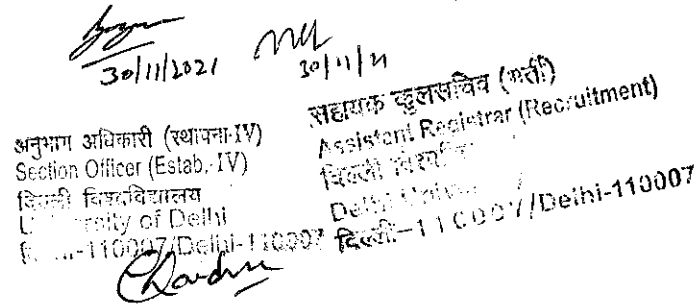 30/11/2021
30/11/21
अनुभाग अधिकारी (स्थापना-IV)
Section Officer (Estab.-IV)
दिल्ली विश्वविद्यालय
University of Delhi
-110007/Delhi-110007
सहायक कुलसचिव (भर्ती)
Assistant Registrar (Recruitment)
दिल्ली
Delhi
दिल्ली-110007/Delhi-110007